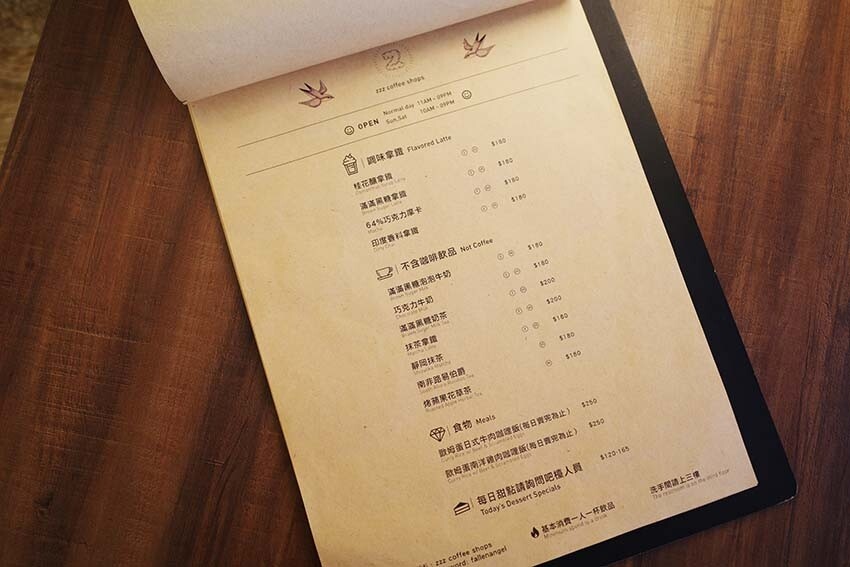 zzz coffee shops
OPEN Normal day 11AM - 09PM
Sun,Sat 10AM - 09PM
調味拿鐵 Flavored Latte
桂花釀拿鐵 $180
滿滿黑糖拿鐵 $180
Brown Sugar Latte
64%巧克力摩卡 $180
Mocha
印度香料拿鐵 $180
不含咖啡飲品 Not Coffee
滿滿黑糖泡泡牛奶 $180
Brown Sugar Milk
巧克力牛奶 $180
Chocolate Milk
滿滿黑糖奶茶 $200
Brown Sugar Milk Tea
抹茶拿鐵 $200
Matcha Latte
靜岡抹茶 $180
Shizuoka Matcha
南非路易伯爵 $180
烤蘋果花草茶 $180
Roasted Apple Herbal Tea
食物 Meals
歐姆蛋日式牛肉咖哩飯(每日賣完為止) $250
Curry Rice w/ Beef & Scrambled Eggs
歐姆蛋南洋雞肉咖哩飯(每日賣完為止) $250
每日甜點請詢問吧檯人員 $120-165
Today's Dessert Specials
基本消費一人一杯飲品
Minimum spend is a drink
洗手間請上三樓
The restroom is on the third floor
- zzz coffee shops
word: fallenangel